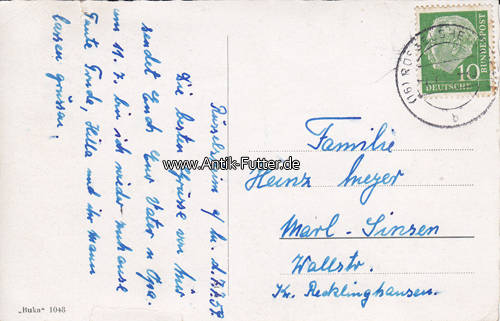 Rüsselsheim a/M. d. 7.7.57
Die besten Grüsse von hier
sendet Euch Euer Vater u. Opa.
am 11.7. bin ich wieder zuhause
Tante Trude, Hilla und ihr Mann
lassen grüssen.
Familie
Heinz Meyer
Marl-Sinsen
Wallstr.
Kr. Recklinghausen.
10
DEUTSCHE
BUNDESPOST
(16)
b
www.Antik-Futter.de
„Buka" 1048